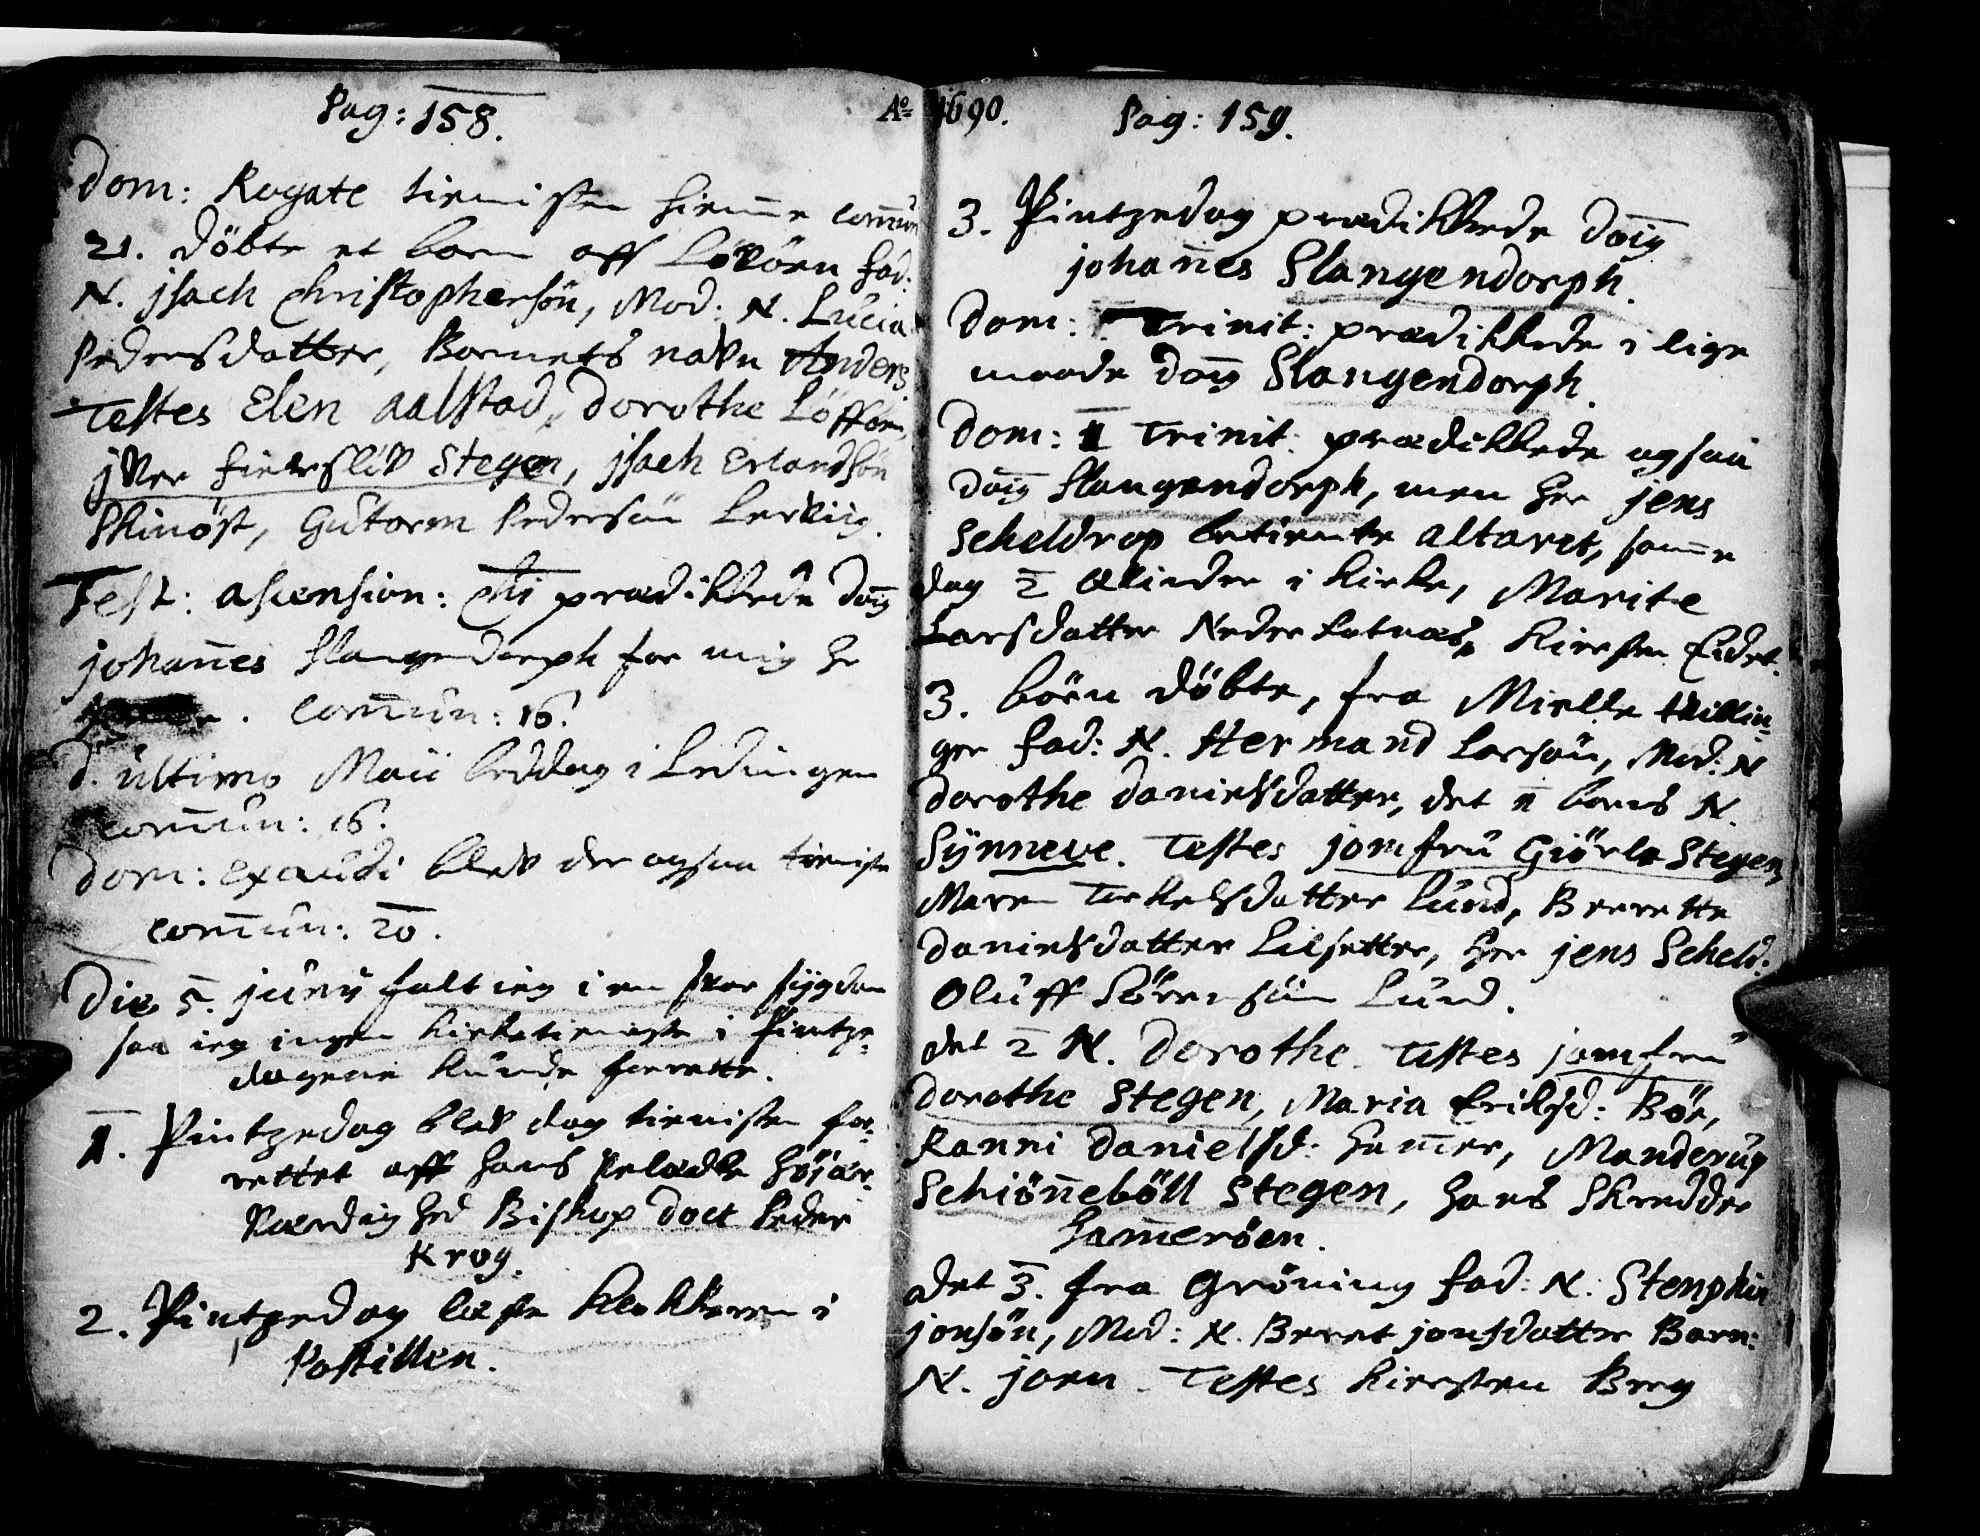 Pag: 158.
Dom: Rogate tienisten hiemme comun
21. döbte et barn aff Lövöen fad:
N. jsach Christophersön, Mod: N. Lucia
Pedersdatter, Barnets navn Anders
Testes Elen Aalstad, Dorothe Löfföen,
jver fieldslev Stegen, jsach Erlandsön
Skinöst, Gutorm Pedersön Lerviig.
Fest: Ascension: Chi prædikkede Dom
johannes Slangendorph for mig
comun: 16.
d. ultimo Maii beddag i Ledingen
comun: 16.
Dom: Exaudi blev der ogsaa tieniste
comun: 20.
Die 5. junij falt ieg i en stor sygdom
saa ieg ingen kirketieniste i Pintze-
dagene kunde forrette.
1. Pintzedag blev dag tienisten for-
rettet aff hans velædle höjær-
værdighed Biskop doct Peder
Krog.
2. Pintzedag læste klokkeren i
Postillen.
Ao 1690.
Pag: 159.
3. Pintzedag prædikkede Dom
johannes Slangendorph.
Dom: Trinit: prædikkede i lige
maade Dom Slangendorph.
Dom: 1 Trinit: prædikkede ogsaa
Dom Slangendorph, men her jens
Scheldrop betiente altaret, samme
dag 2 qvinder i kirke, Marite
Larsdatter Neder kirsten Eidet.
3. börn döbte, fra Mielle tvillin-
ger fad: N. Hermand Larsön, Mod: N
Dorothe Danielsdatter, det 1 barns N.
Synneve. Testes jomfru Giörle Stegen,
Maren Torkelsdatter Lund, Berette
Danielsdatter Lilsetter, her jens Scheld:
Oluff Sörensön Lund.
det 2 N. Dorothe. Testes jomfru
Dorothe Stegen, Maria Eriksd: Böe,
Ranni Danielsd: Hamer, Manderup
Schiönneböll Stegen, hans Skredder
Hameröen.
det 3. fra Gröning fad: N. Stenphin
jonsön, Mod: N. Beret jonsdatter Barn:
N. joen. Testes kirsten Berg